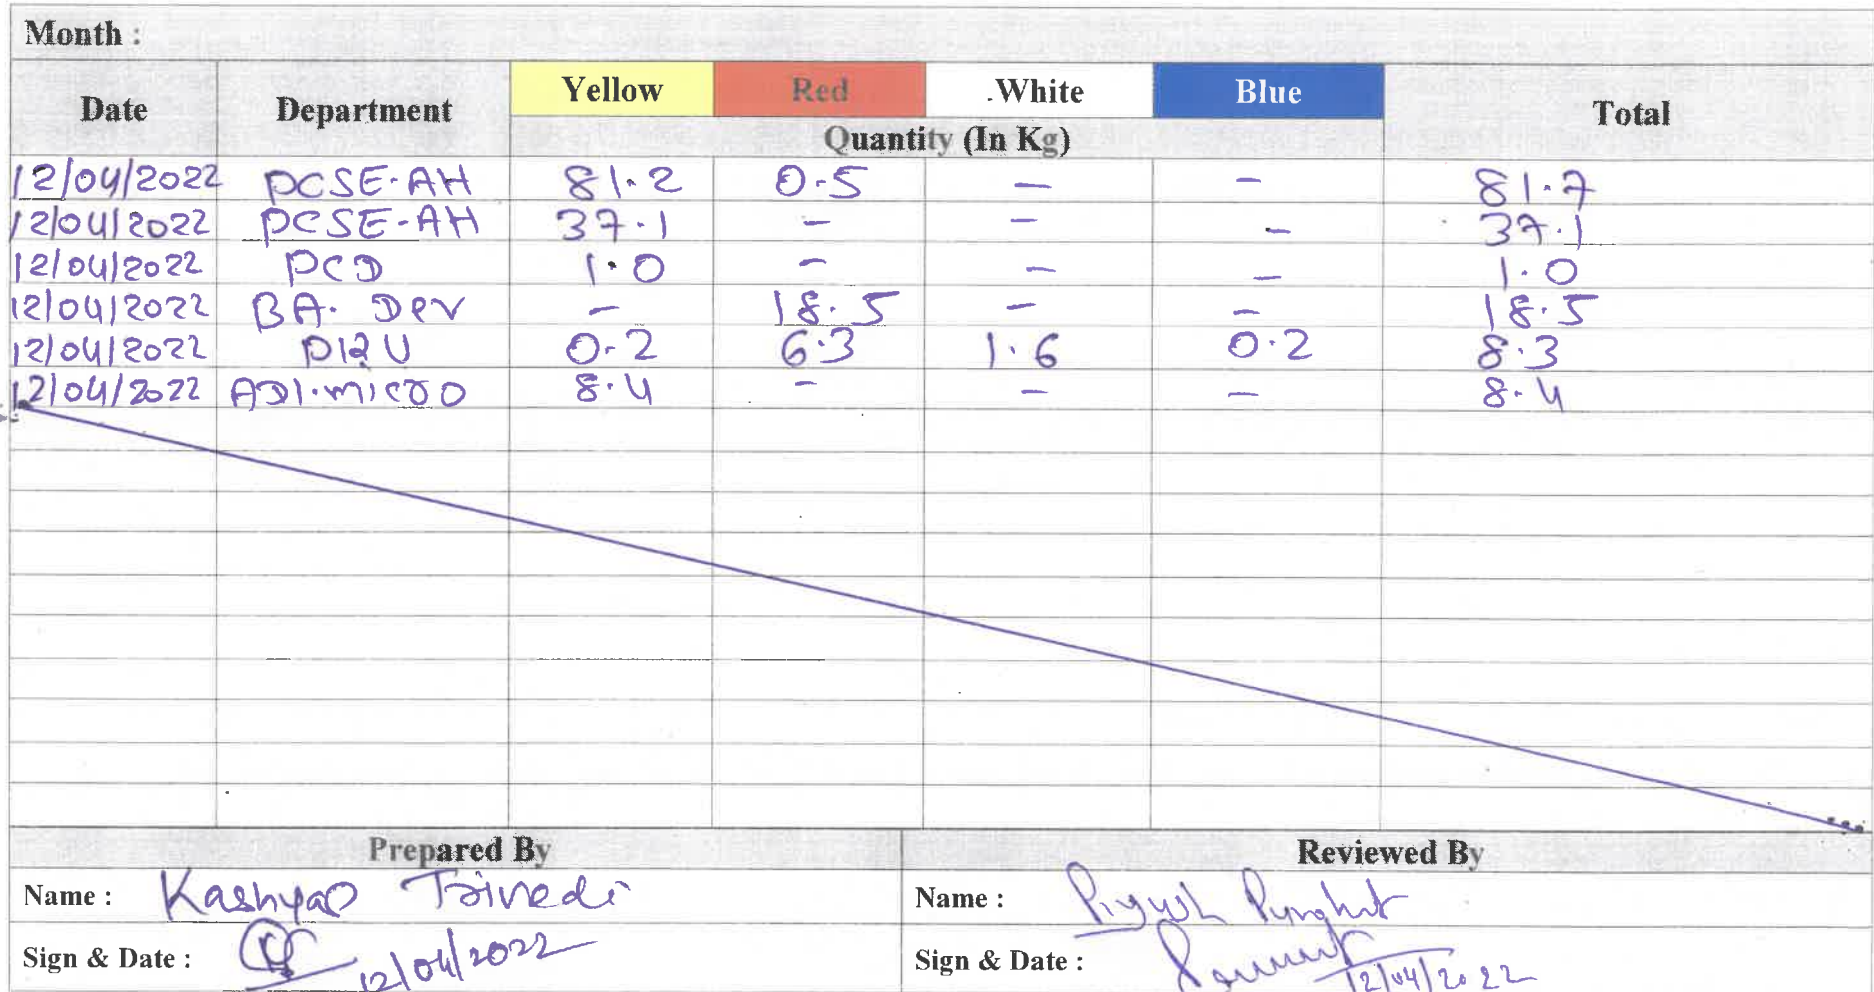 Month :
Date Department Yellow Red .White Blue Total
Quantity (In Kg)
12/04/2022 PCSE-AH 81.2 0.5 - - 81.7
12/04/2022 PCSE-AH 37.1 - - - 37.1
12/04/2022 PCD 1.0 - - - 1.0
12/04/2022 BA. Dev - 18.5 - - 18.5
12/04/2022 0.2 6.3 1.6 0.2 8.3
12/04/2022 ADI.micro 8.4 - - - 8.4
Prepared By Reviewed By
Name : Kashyap Trivedi Name : Piyush
Sign & Date : 12/04/2022 Sign & Date : 12/04/2022